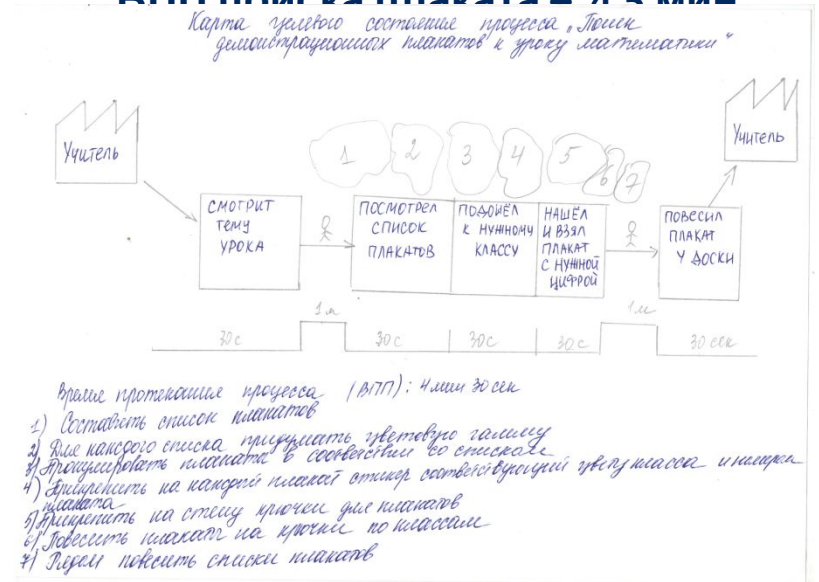 ВПП поиска плаката – 4,5 мин
Карта целевого состояния процесса „Поиск
демонстрационных плакатов к уроку математики“
Учитель
Учитель
1 2 3 4 5 6 7
СМОТРИТ
ТЕМУ
УРОКА
ПОСМОТРЕЛ
СПИСОК
ПЛАКАТОВ
ПОДОШЁЛ
К НУЖНОМУ
КЛАССУ
НАШЁЛ
И ВЗЯЛ
ПЛАКАТ
С НУЖНОЙ
ЦИФРОЙ
ПОВЕСИЛ
ПЛАКАТ
У ДОСКИ
30с 1м 30с 30с 30с 1м 30 сек
Время протекания процесса (ВПП): 4 мин 30 сек
1) Составить список плакатов
2) Для каждого списка придумать цветовую гамму
3) Пронумеровать плакаты в соответствии со списком
4) Прикрепить на каждый плакат стикер соответствующий цвету класса и номера
плаката
5) Прикрепить на стену крючки для плакатов
6) Повесить плакаты на крючки по классам
7) Рядом повесить списки плакатов